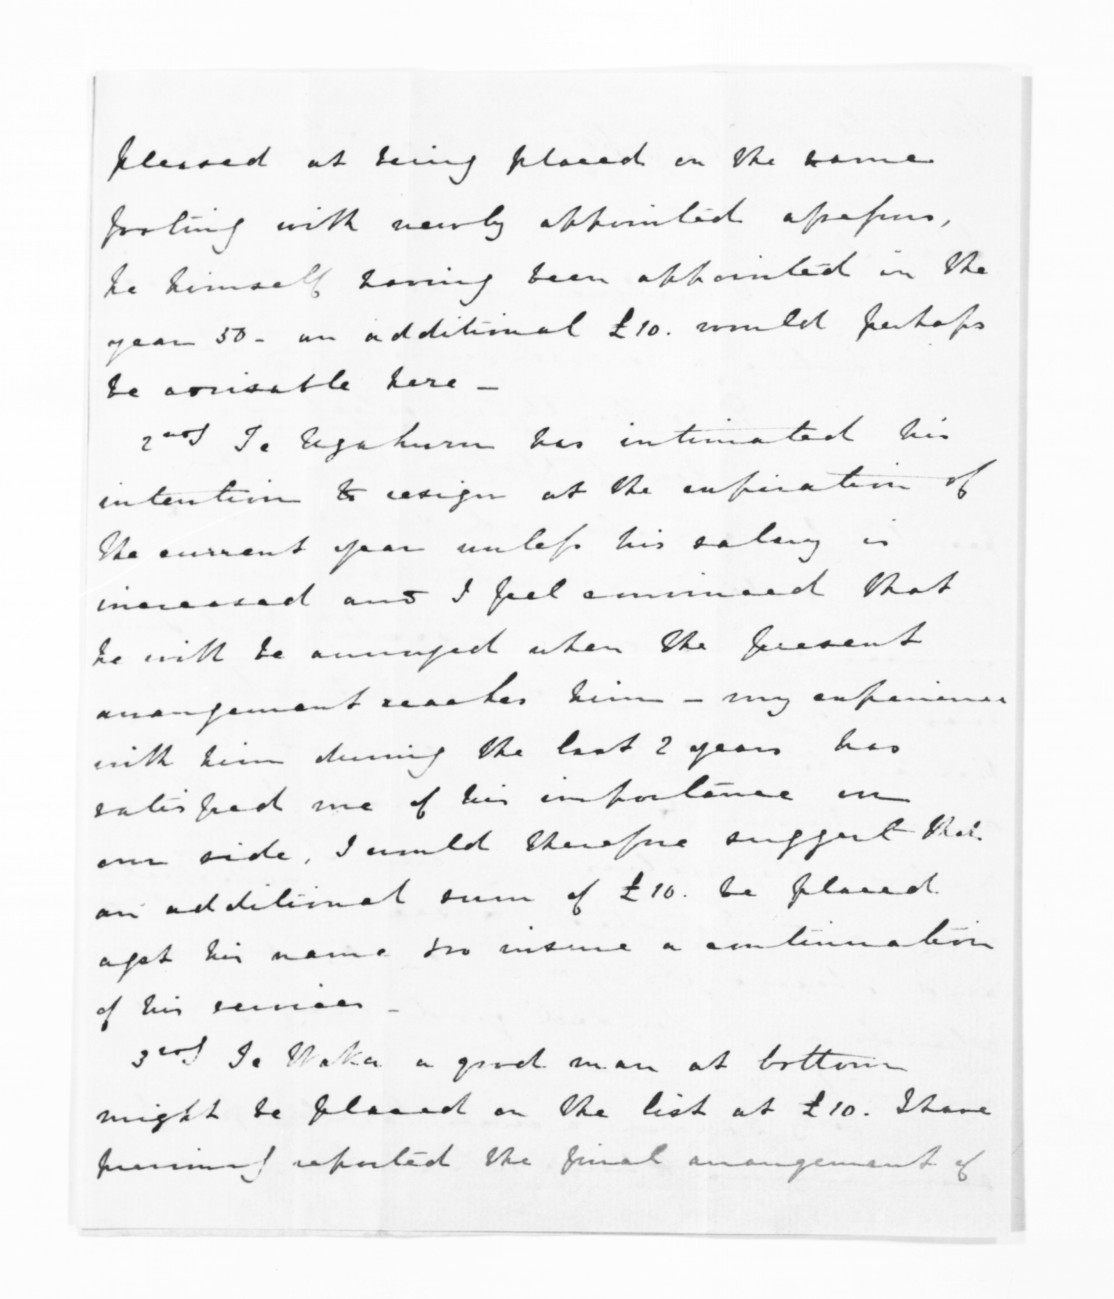 pleased at being placed on the same
footing with newly appointed assessors,
he himself having been appointed in the
year 50 - an additional £10. would perhaps
be advisable here -
2ndly Te Ngahuru has intimated his
intention to resign at the expiration of
the current year unless his salary is
increased and I feel convinced that
he will be annoyed when the present
arrangement reaches him - my experience
with him during the last 2 years has
satisfied me of his importance on
our side, I would therefore suggest that
an additional sum of £10. be placed
agst his name to insure a continuation
of his services -
3rdly Te Waka a good man at bottom
might be placed on the list at £10. I have
previously reported the final arrangement of